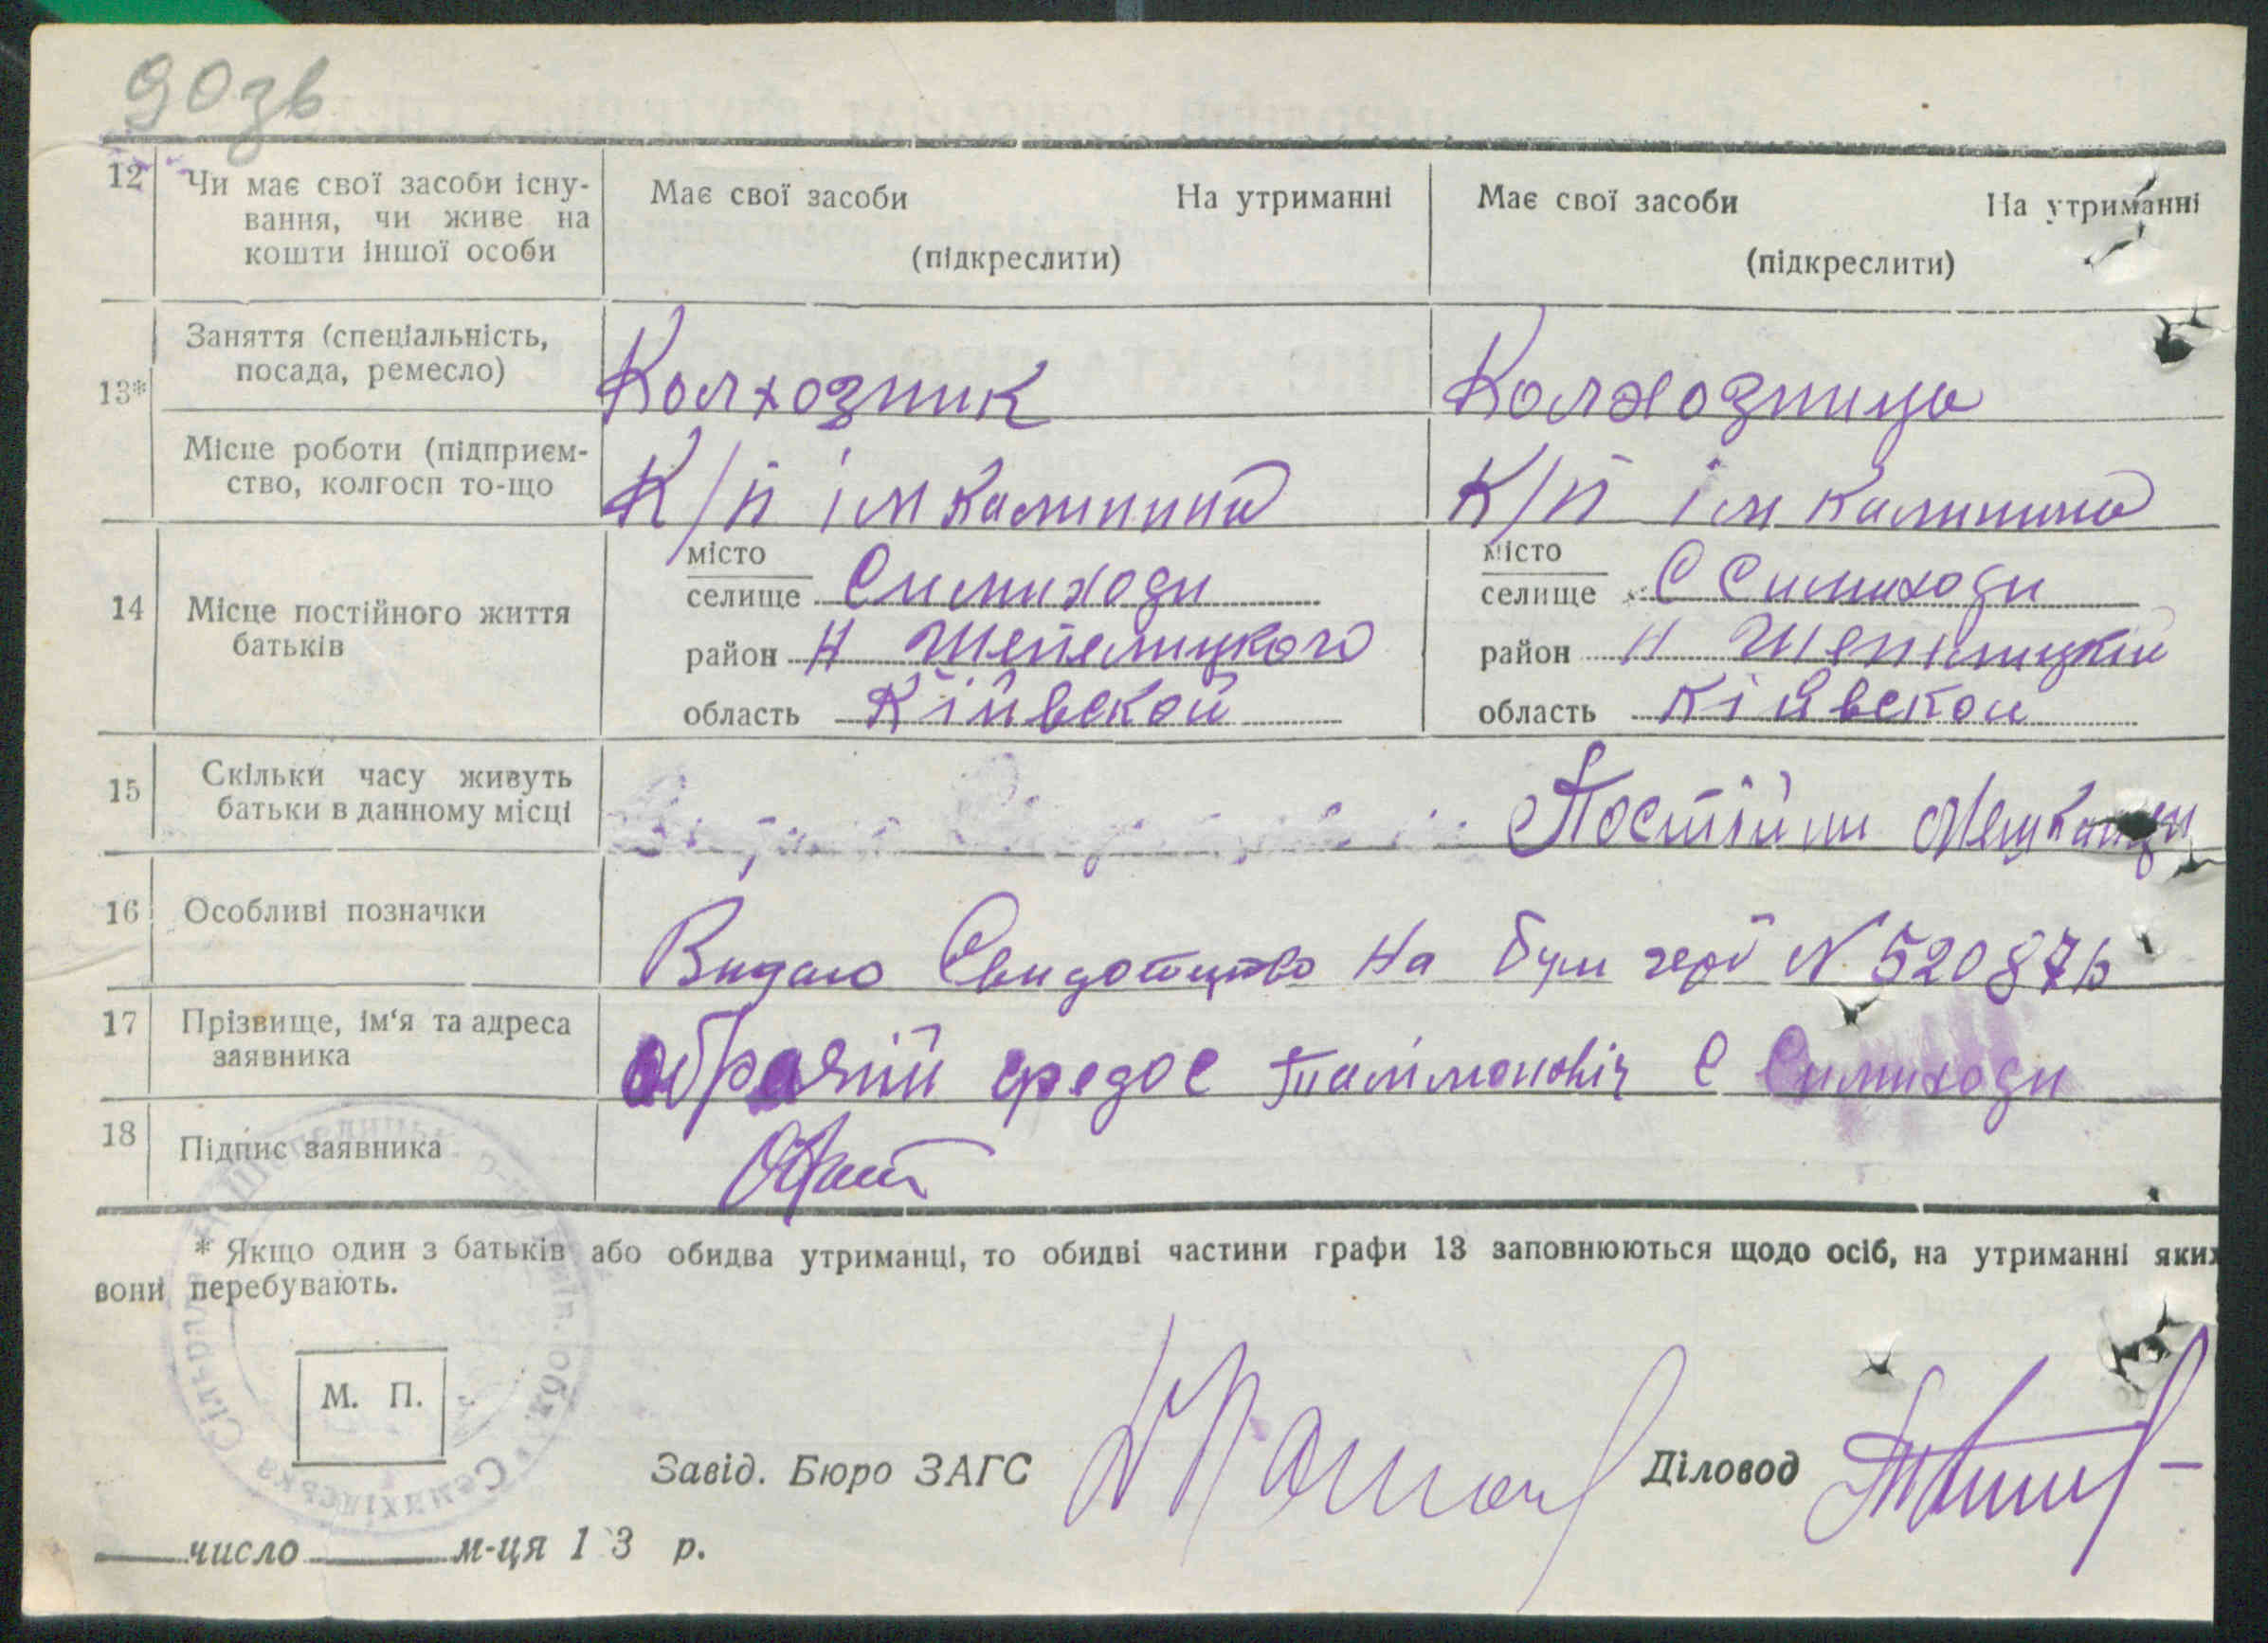 90зв
12 Чи має свої засоби існу- Має свої засоби На утриманні Має свої засоби На утриманні
вання, чи живе на
кошти іншої особи (підкреслити) (підкреслити)
13* Заняття (спеціальність,
посада, ремесло) Колхозник Колхозница
Місце роботи (підприєм-
ство, колгосп то-що К/п ім Калинина К/п ім Калинина
14 Місце постійного життя
батьків
місто
селище Симиходи
район Н Шепелицкого
область Кійвской
місто
селище С Симиходи
район Н Шепилицкий
область Кійвской
15 Скільки часу живуть
батьки в данному місці Постійни Мешканци
16 Особливі позначки Видаю Свидотцтво На серії N 520876
17 Прізвище, ім'я та адреса
заявника федос С Симиходи
18 Підпис заявника
* Якщо один з батьків або обидва утриманці, то обидві частини графи 13 заповнюються щодо осіб, на утриманні яких
вони перебувають.
М. П.
Завід. Бюро ЗАГС Діловод
число м-ця 1 3 р.
Семихідська Сільрада Н Шепелицьк. р-ну Київ. обл.